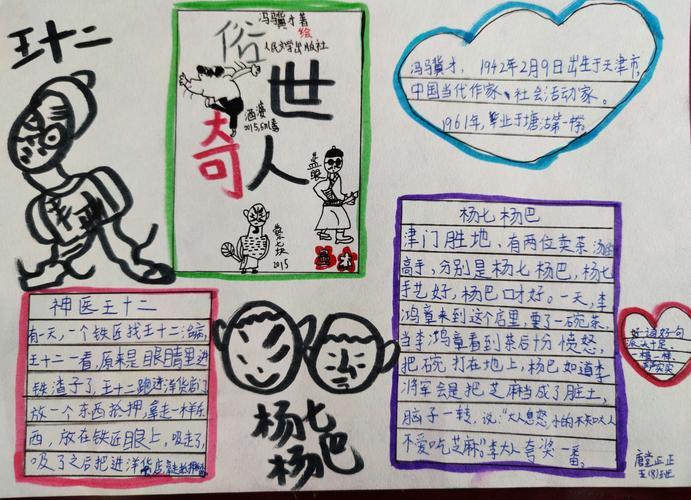 王十二
冯骥才著
绘
人民文学出版社
俗
世
奇
人
酒婆
2015
蓝眼
蔡二少
2015
冯骥才，1942年2月9日出生于天津市，
中国当代作家、社会活动家。
1961年，毕业于塘沽第一
杨七杨巴
津门胜地，有两位卖茶汤的
高手，分别是杨七杨巴，杨七
手艺好，杨巴口才好。一天，李
鸿章来到这个店里，要了一碗茶，
当李鸿章看到茶后十分愤怒，
把碗打在地上，杨巴如道李
将军会是把芝麻当成了脏土，
脑子一转，说：“大人息怒，小的不知大人
不爱吃芝麻。”李大人夸奖一番。
神医王十二
有一天，一个铁匠找王十二治病，
王十二一看，原来是眼睛里进
铁渣子了，王十二跑进洋货店门
放一个东西抵押，拿走一样东
西，放在铁匠眼上，吸走了，
吸了之后把进洋货店
杨七
杨巴
好词好句
派头十足
一模一样
唐堂正正
五(8)班